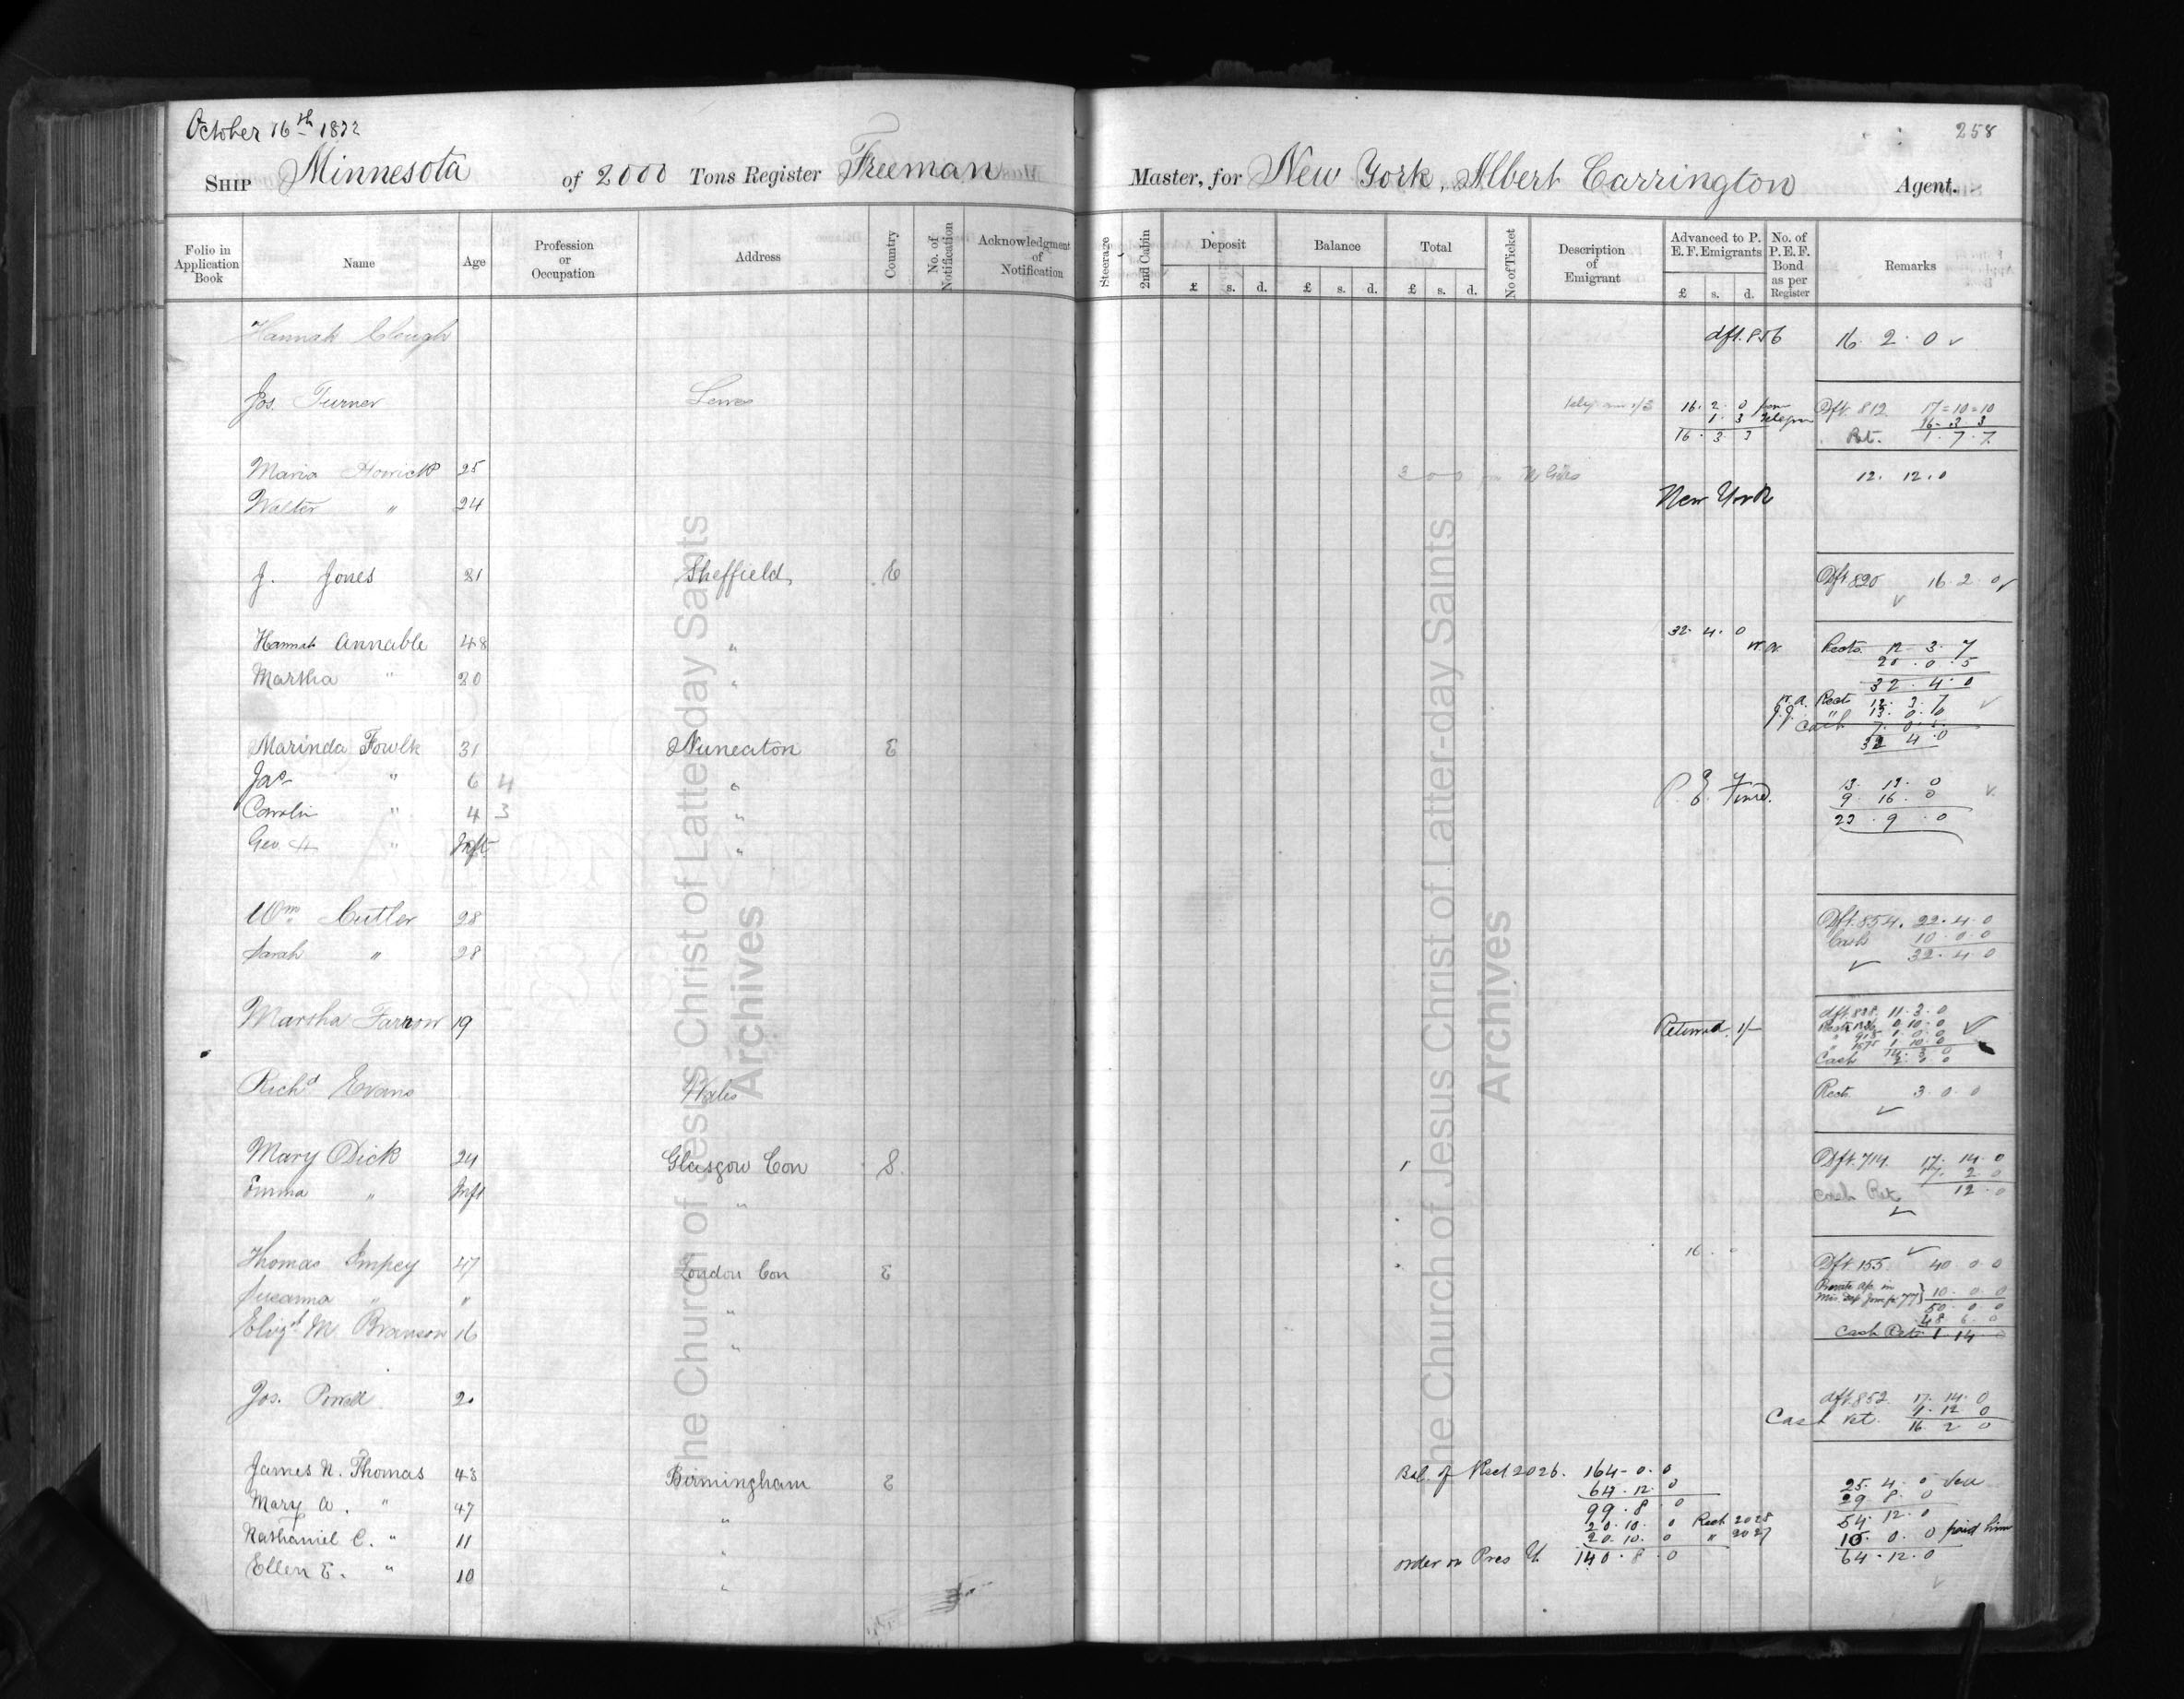 October 16th 1872
258
SHIP Minnesota of 2000 Tons Register Freeman Master, for New York, Albert Carrington Agent.
Folio in Application Book | Name | Age | Profession or Occupation | Address | Country | No. of Notification | Acknowledgment of Notification | Steerage | 2nd Cabin | Deposit £ s. d. | Balance £ s. d. | Total £ s. d. | No of Ticket | Description of Emigrant | Advanced to P. E. F. Emigrants £ s. d. | No. of P. E. F. Bond as per Register | Remarks
Hannah Clough dft. 856 16. 2. 0
Jos. Turner 16. 2. 0 Dft. 812 17=10=10
1. 3 16-3 3
16. 3. 3 Ret. 1. 7. 7
Maria 25 3 0 0 12. 12. 0
Walter " 24 New York
J. Jones 21 Sheffield, E Dft. 820 16. 2. 0
Hannah Annable 48 " 32. 4. 0 Rects. 12 3. 7
20. 0. 5
Martha " 20 " 32. 4. 0
Rect 12. 3. 7
" 13. 0. 0
Cash 7. 0.
Marinda Fowlk 31 Nuneaton E 32 4. 0
Jas " 6 4 " P. E. Fund. 13. 13. 0
9. 16. 0
Carolin " 4 3 " 23. 9. 0
Geo. H " Inft "
Wm Cutler 28 Dft. 854. 22. 4. 0
Cash 10. 0. 0
Sarah " 28 32. 4. 0
Marsha Farrow 19 Returned 1/- 11. 3. 0
0 10. 0
1. 0. 0
1575 1. 10. 0
14. 3. 0
Cash
Richd Evans Wales Rect. 3. 0. 0
Mary Dick 24 Glasgow Con S. Dft. 714. 17. 14. 0
17. 2. 0
Emma " Inft " Cash Ret. 12. 0
Thomas Empey 47 London Con E 16. Dft. 155 40. 0. 0
Susanna " " " 10. 0. 0
50. 0. 0
Elizt. M Branson 16 " 48 6. 0
Cash Ret. 1 14. 0
Jos. Powell 20 dft. 852 17. 14. 0
Cash ret. 1. 12 0
16 2 0
James N. Thomas 43 Birmingham E Bal. of Rect 2026. 164-0. 0 25. 4. 0
64. 12. 0 29 8. 0
Mary A. " 47 " 99. 8. 0 54. 12. 0
20. 10. 0 Rect 2028
Nathaniel C. " 11 " 20. 10. 0 " 2027 10. 0. 0 paid him
order on Pres Y. 140. 8. 0 64. 12. 0
Ellen E. " 10 "
The Church of Jesus Christ of Latter-day Saints
Archives
The Church of Jesus Christ of Latter-day Saints
Archives